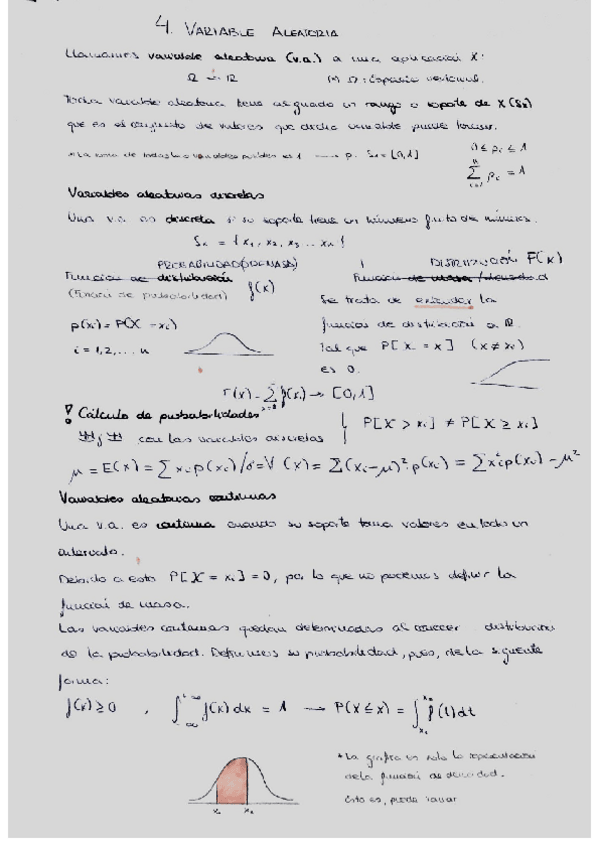 4. VARIABLE ALEATORIA
Llamamos variable aleatoria (v.a.) a una aplicación X:
Ω → IR (*) Ω: Espacio
Toda variable aleatoria tiene asignado un rango o soporte de X (Sx)
que es el conjunto de valores que dicha variable puede tomar.
* La suma de todas las variables posibles es 1 → p. Sx = [0,1]
0 ≤ pi ≤ 1
Σ pi = 1
Variables aleatorias discretas
Una v.a. es discreta si su soporte tiene un número finito de
Sx = { x1, x2, x3 .. xn }
PROBABILIDAD (O DE MASA)
Función de distribución f(x)
(Función de probabilidad)
p(xi) = P(X = xi)
i = 1, 2, ... n
DISTRIBUCIÓN F(x)
Función de masa /
Se trata de extender la
función de distribución a IR.
Tal que P[X = x] (x ≠ xi)
es 0.
F(x) = Σ f(xi) → [0,1]
! Cálculo de probabilidades
con las variables discretas
P[X > xi] ≠ P[X ≥ xi]
μ = E(x) = Σ xi p(xi) / σ = V(x) = Σ(xi - μ)² · p(xi) = Σ xi² p(xi) - μ²
Variables aleatorias continuas
Una v.a. es continua cuando su soporte toma valores en todo un
intervalo.
Debido a esto P[X = xi] = 0, por lo que no podemos definir la
función de masa.
Las variables continuas quedan determinadas al conocer distribución
de la probabilidad. Definimos su probabilidad, pues, de la siguiente
forma:
f(x) ≥ 0 , ∫ f(x) dx = 1 → P(X ≤ x) = ∫ f(t) dt
x1 x2
* La gráfica es solo la representación
de la función de densidad.
Esto es, puede tomar